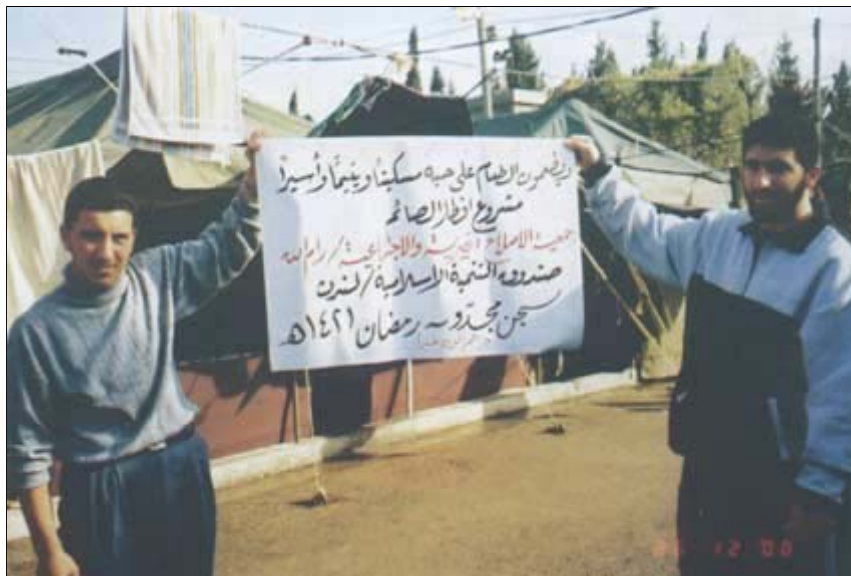 ويطعمون الطعام على حبه مسكيناً ويتيماً وأسيراً
مشروع افطار الصائم
جمعية الاصلاح الخيرية والاجتماعية / رام الله
صندوق التنمية الاسلامية / لندن
سجن مجدو رمضان ١٤٢١هـ
12 00